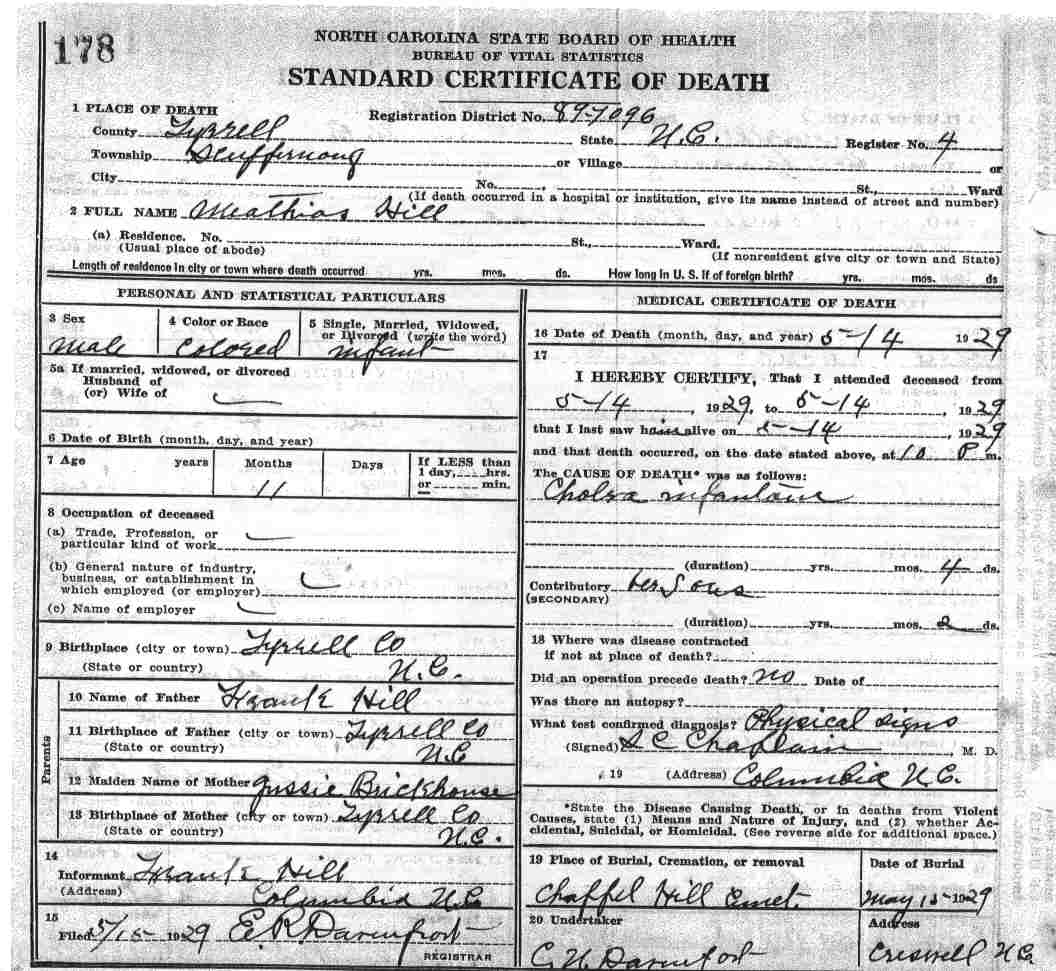 178
NORTH CAROLINA STATE BOARD OF HEALTH
BUREAU OF VITAL STATISTICS
STANDARD CERTIFICATE OF DEATH
1 PLACE OF DEATH
Registration District No. 89-7096
County Tyrrell State N.C. Register No. 4
Township Scuppernong or Village or
City No. , St., Ward
(If death occurred in a hospital or institution, give its name instead of street and number)
2 FULL NAME Meathias Hill
(a) Residence, No. St., Ward.
(Usual place of abode) (If nonresident give city or town and State)
Length of residence in city or town where death occurred yrs. mos. ds. How long in U. S. if of foreign birth? yrs. mos. ds
PERSONAL AND STATISTICAL PARTICULARS
3 Sex
male
4 Color or Race
Colored
5 Single, Married, Widowed,
or Divorced (write the word)
infant
5a If married, widowed, or divorced
Husband of
(or) Wife of
6 Date of Birth (month, day, and year)
7 Age years Months Days If LESS than
1 day, hrs.
or min.
11
8 Occupation of deceased
(a) Trade, Profession, or
particular kind of work
(b) General nature of industry,
business, or establishment in
which employed (or employer)
(c) Name of employer
9 Birthplace (city or town) Tyrrell Co
(State or country) N.C.
Parents
10 Name of Father Frank Hill
11 Birthplace of Father (city or town) Tyrrell Co
(State or country) N.C
12 Maiden Name of Mother Gussie Brickhouse
13 Birthplace of Mother (city or town) Tyrrell Co
(State or country) N.C.
14
Informant Frank Hill
(Address) Columbia N.C
15
Filed 5/15- 1929 E.R. Davenport
REGISTRAR
MEDICAL CERTIFICATE OF DEATH
16 Date of Death (month, day, and year) 5-14 1929
17
I HEREBY CERTIFY, That I attended deceased from
5-14 , 1929, to 5-14 , 1929
that I last saw him alive on 5-14 , 1929
and that death occurred, on the date stated above, at 10 P m.
The CAUSE OF DEATH* was as follows:
Cholera infantum
(duration) yrs. mos. 4 ds.
Contributory
(SECONDARY)
(duration) yrs. mos. 2 ds.
18 Where was disease contracted
if not at place of death?
Did an operation precede death? no Date of
Was there an autopsy?
What test confirmed diagnosis? Physical signs
(Signed) S C Chaplain , M. D.
, 19 (Address) Columbia N.C.
*State the Disease Causing Death, or in deaths from Violent
Causes, state (1) Means and Nature of Injury, and (2) whether Ac-
cidental, Suicidal, or Homicidal. (See reverse side for additional space.)
19 Place of Burial, Cremation, or removal
Chappel Hill Cemet.
Date of Burial
May 15- 1929
20 Undertaker
C. N. Davenport
Address
Creswell N.C.